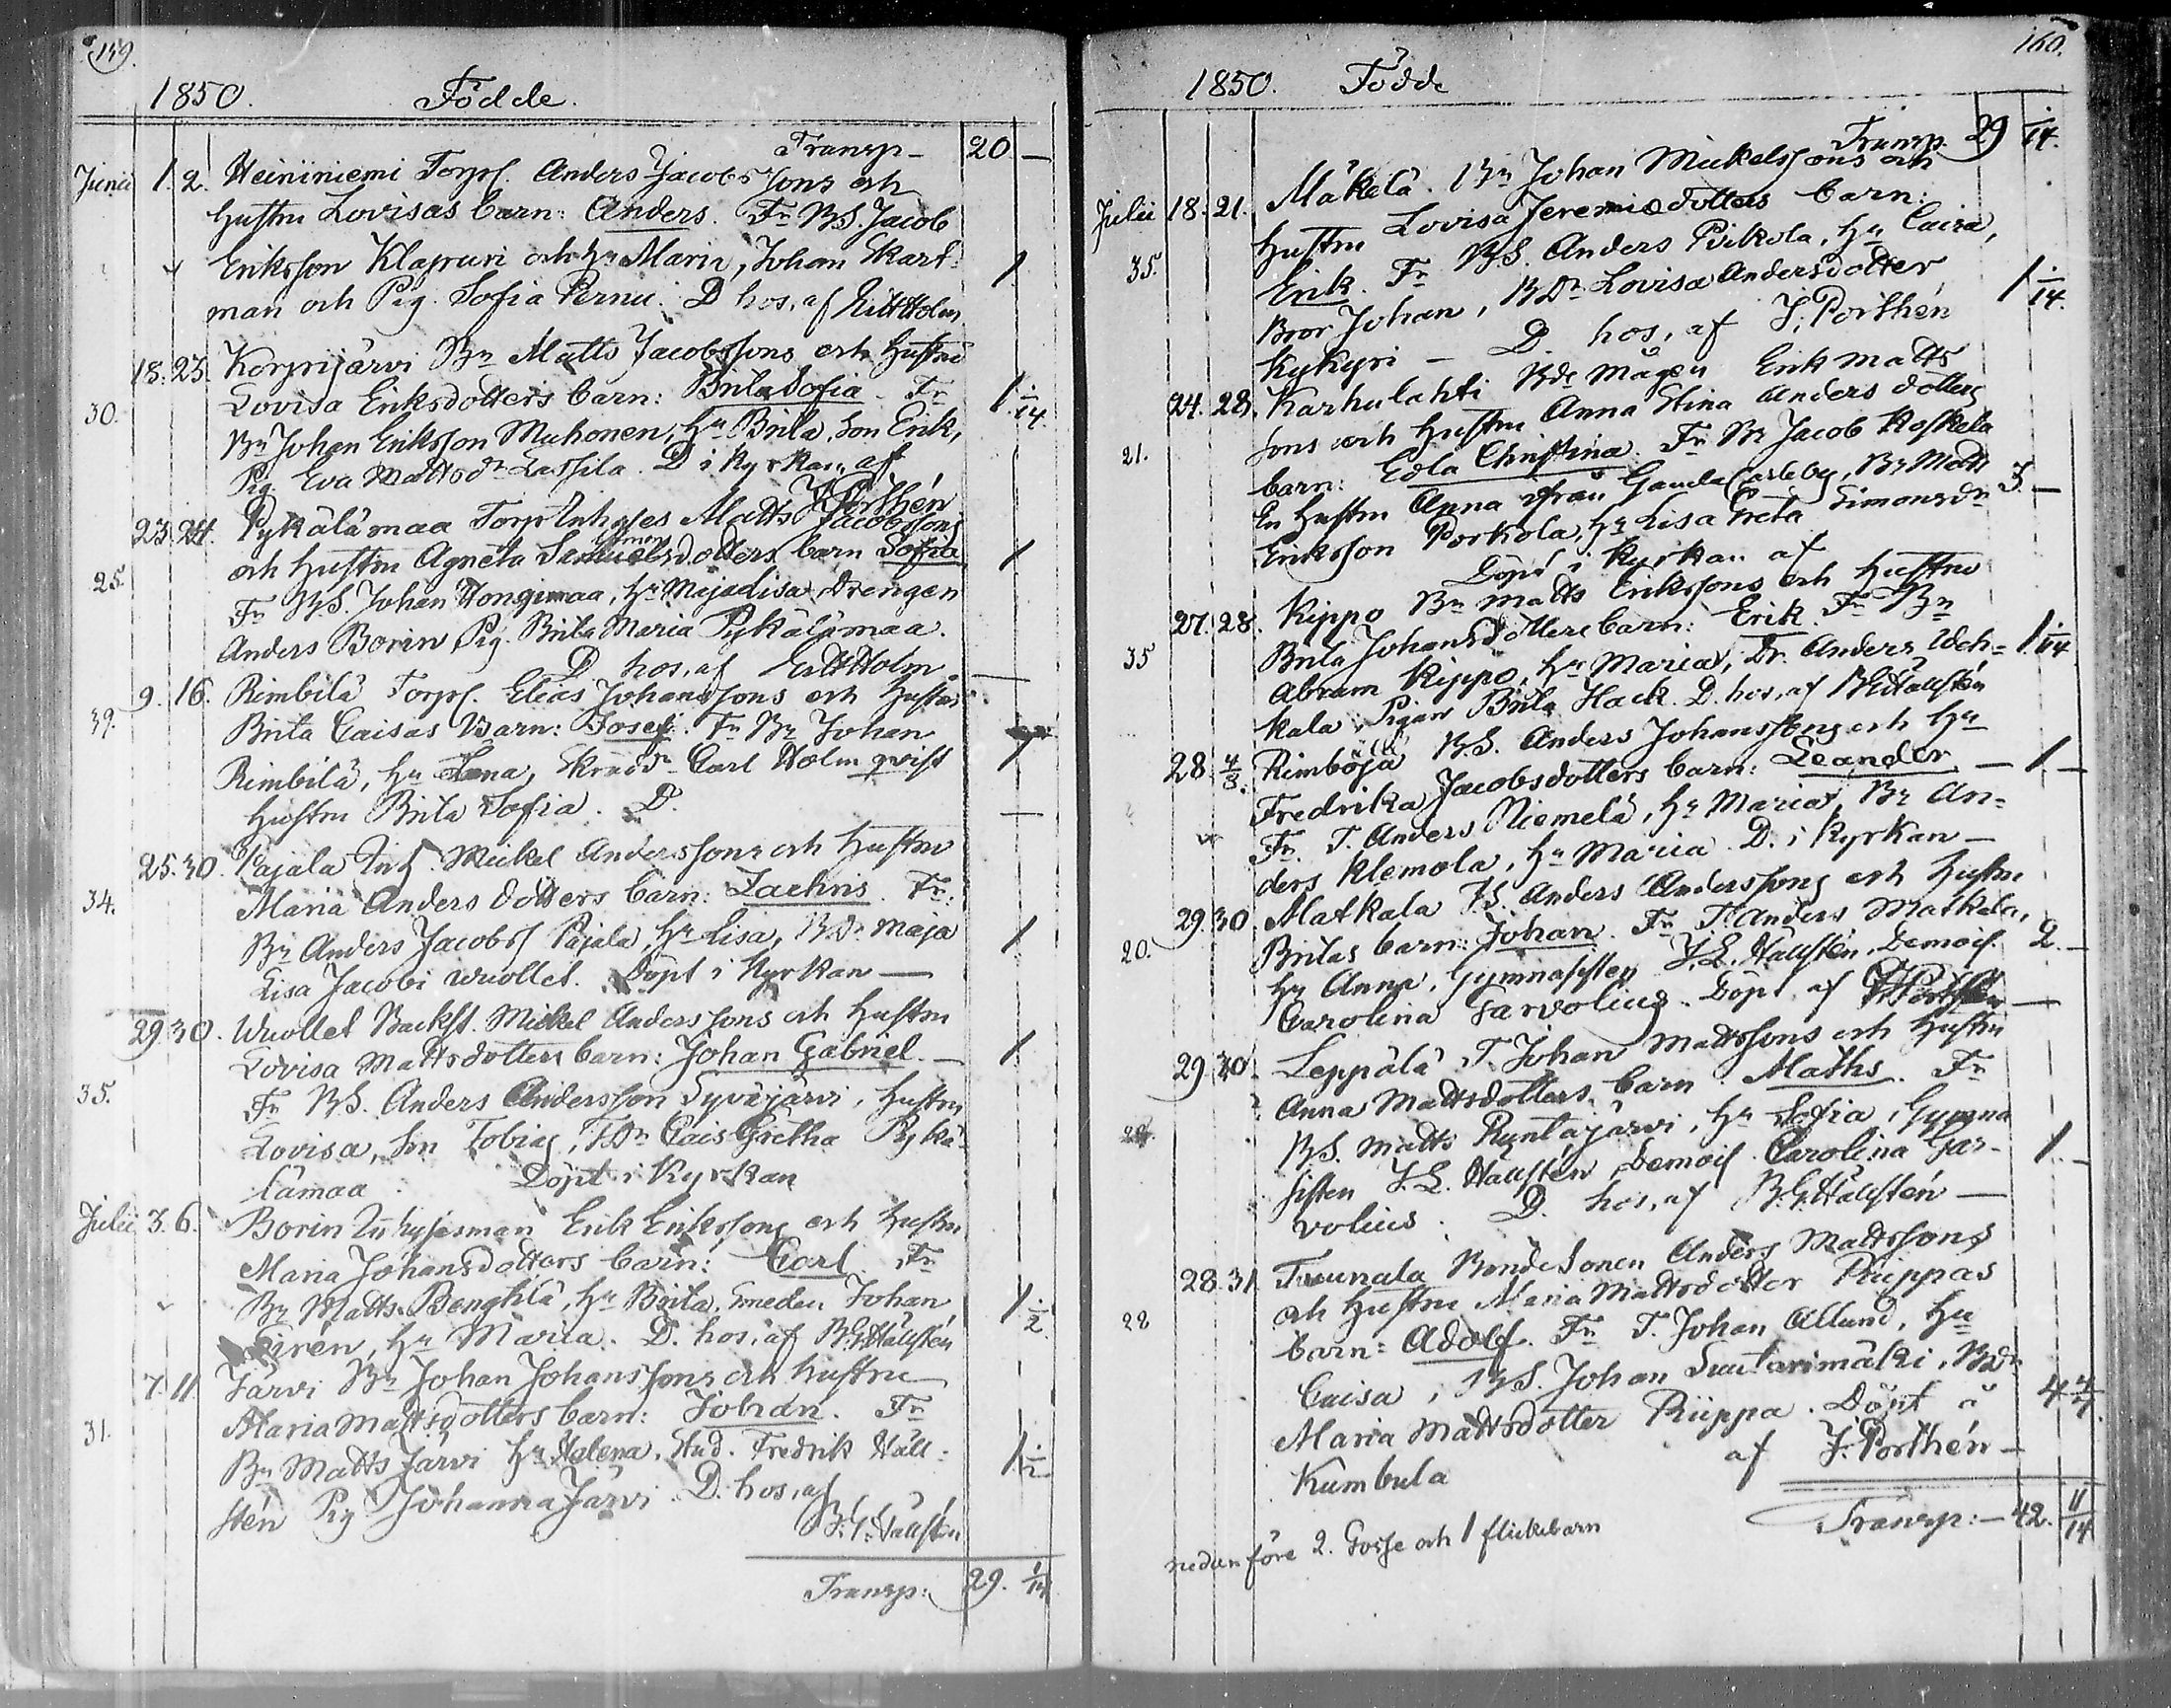 159.
1850. Födde.
Transp- 20 —
Junii 1. 2. Heininiemi Torpf. Anders Jacobssons och
hustru Lovisas barn: Anders. Fr BS. Jacob
Eriksson Klapuri och hu Maria, Johan Skart-
man och Pig. Sofia Pernu. D hos, af Holm 1.
18. 23. Korpijärvi Bn Matts Jacobssons och hustru
30. Lovisa Eriksdotters barn: Brita Sofia. Fr 1 1/14
Bn Johan Eriksson Muhonen, hu Brita, Son Erik,
Pig. Eva Mattsdr Lassila. D i Kyrkan, af
J. Porthén
23. 24. Pykälämaa Torp Inhyses Matts Jacobssons
och hustru Agneta dotters barn Sofia 1
25. Fr BS. Johan Hongimaa, hu Maja Lisa, Drengen
Anders Borin Pig. Brita Maria Pykälämaa.
D hos, af Holm —
9. 16. Rimbilä Torpf. Elias Johanssons och hustru
39. Brita Caisas Barn: Josef. Fr Bn Johan
Rimbilä, hu Lena, Skradr Carl Holmqvist 1
hustru Brita Sofia. D. —
25. 30. Pajala Inh. Mickel Anderssons och hustru
34. Maria Anders dotters barn: Zachris. Fr:
Bn Anders Jacobss Pajala, hu Lisa, BDr Maja 1
Lisa Jacobi Wuollet. Döpt i Kyrkan —
29. 30. Wuollet Backst. Mickel Anderssons och hustru
Lovisa Mattsdotters barn: Johan Gabriel. — 1
35. Fr BS. Anders Andersson Syväjärvi, hustru
Lovisa, Son Tobias, TDr Cais Gretha Pykä-
lämaa. Döpt i Kyrkan
Julii 3. 6. Borin Inhysesman Erik Erikssons och hustru
Maria Johansdotters barn: Carl. Fr
Bn Matts Benghlä, hu Brita, Smeden Johan 1 1/2
Sirén, hu Maria. D. hos, af B.G. Hällstén
7. 11. Järvi Bn Johan Johanssons och hustru
31. Maria Mattsdotters barn: Johan. Fr
Bn Matts Järvi hu Helena, Stud. Fredrik Häll- 1 1/2
stén Pig Johanna Järvi. D. hos, af
B.G. Hällstén
Transp: 29. 1/14
160.
1850. Födde
Transp. 29 1/14.
Julii 18. 21. Mäkelä. Bn Johan Mickelssons och
hustru Lovisa Jeremiædotters barn:
35. Erik. Fr BS. Anders Pirkola, hu Caisa,
Bror Johan, BDr Lovisa Andersdotter 1 1/14.
Kykyri — D. hos, af J. Porthén
24. 28. Karhulahti Bde Mågen Erik Matts
sons och hustru Anna Stina Anders dotters
21. barn: Edla Christina. Fr Bn Jacob Koskela
En hustru Anna ifrån Gamla Carleby, Bn Matts 3. —
Eriksson Porkola, hu Lisa Greta Simonsdr
Döpt i Kyrkan af
27. 28. Kippo Bn Matts Erikssons och hustru
35 Brita Johansdotters barn: Erik. Fr Bn
Abram Kippo, hu Maria, Dr. Anders Weh- 1. 1/14
kala, Pigan Brita Hack. D. hos, af B.G. Hällstén
28 4/8. Rimböjä BS. Anders Johanssons och hu
Fredrika Jacobsdotters barn: Leander — 1 —
Fr. T. Anders Niemelä, hu Maria, Bn An-
ders Klemola, hu Maria. D. i Kyrkan —
29. 30. Matkala TS. Anders Anderssons och hustru
20. Britas barn: Johan. Fr T. Anders Matkala, 2. —
hu Anna, Gymnasisten J.L. Hällstén, Demois.
Carolina Garvolius. Döpt, af J. Porthén —
29. 30. Leppälä T. Johan Mattssons och hustru
Anna Mattsdotters barn: Maths. Fr
28. BS. Matts Ryntäjärvi, hu Sofia, Gymna
sisten J.L. Hällstén, Demois. Carolina Gar- 1. —
volius. D. hos, af B.G. Hällstén —
28. 31. Tuunala Bondesonen Anders Mattssons
och hustru Maria Mattsdotter Riippas
28 barn: Adolf. Fr T. Johan Allund, hu
Caisa, BS. Johan Suutarimäki, BDr
Maria Mattsdotter Riippa. Döpt å 4 4/7
Kumbula af J. Porthén —
Transp: — 42. 11/14
nedanföre 2. Gosse och 1 flickebarn